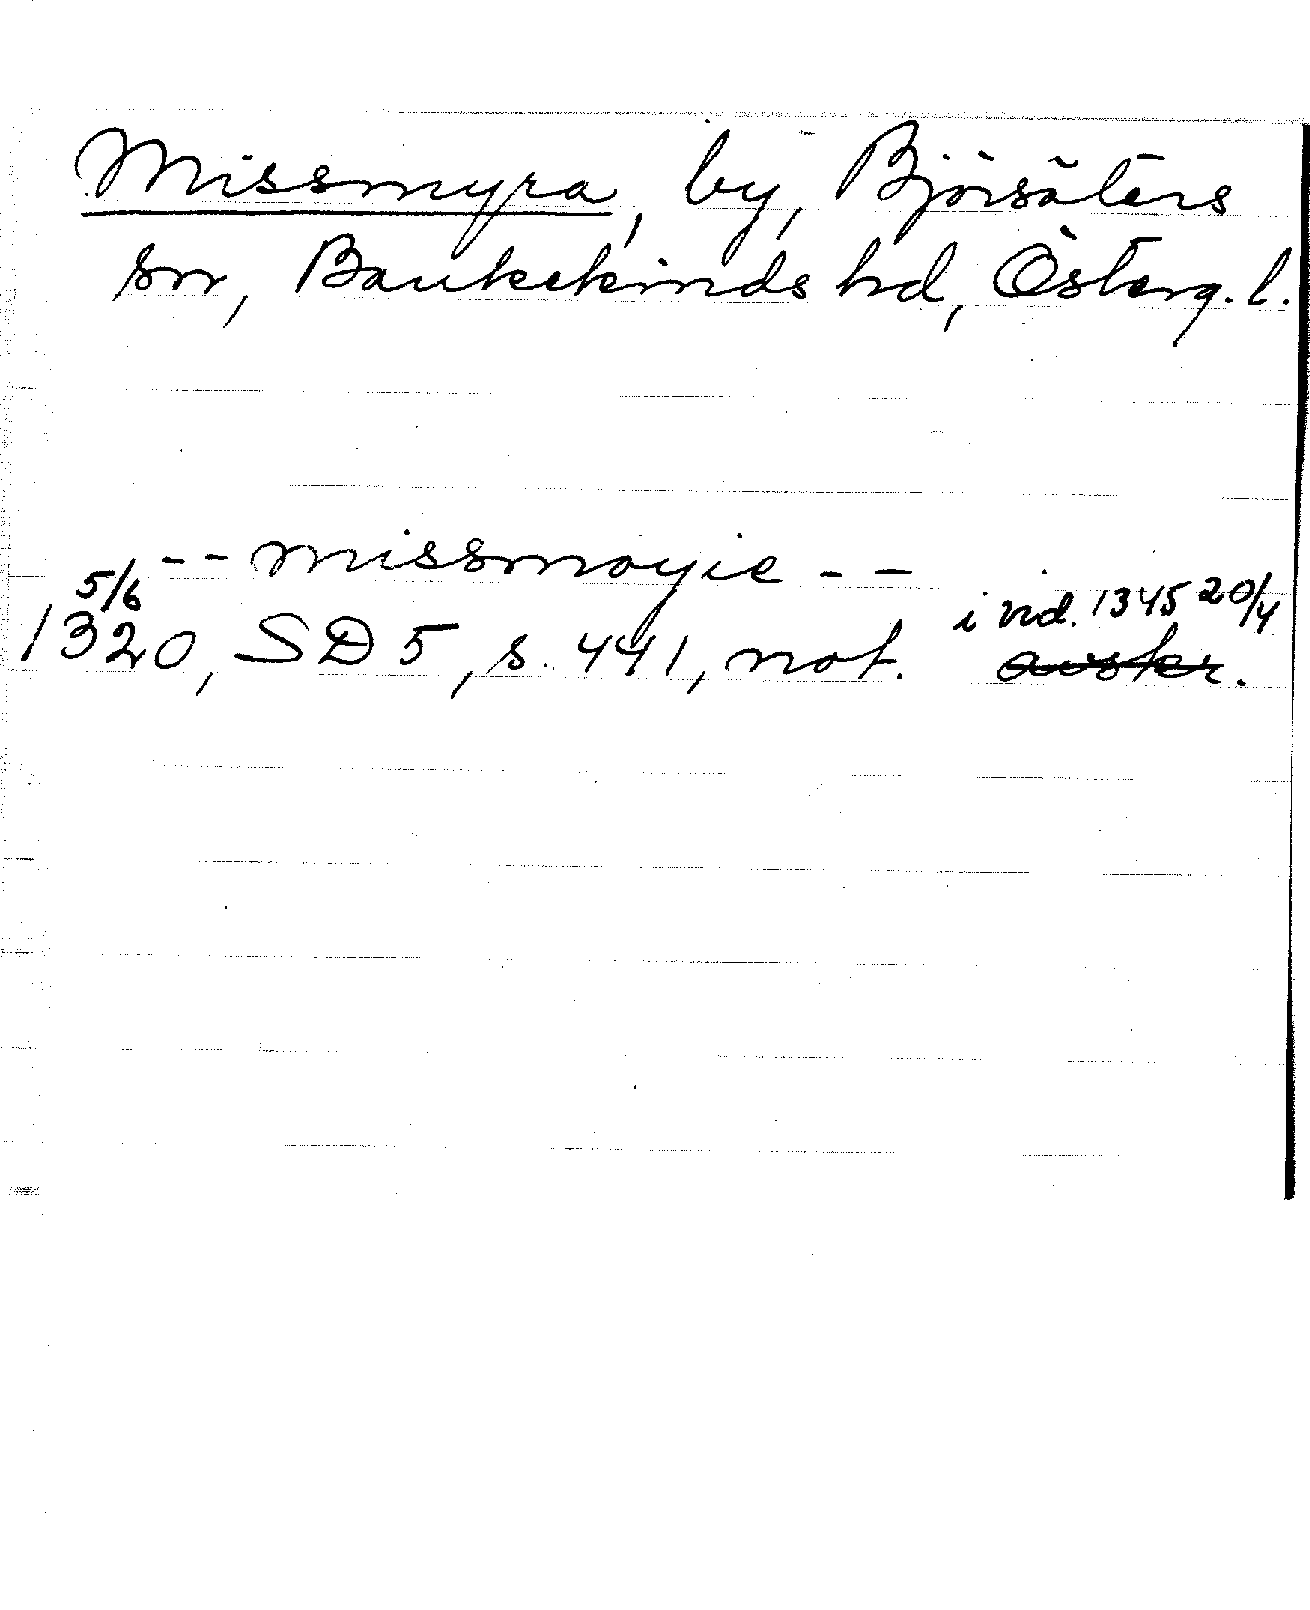 Missmyra, by, Björsäters
sn, Bankekinds hd, Österg. l.
-- missmoyie --
5/6 i vid. 1345 20/4
1320, SD 5, s. 441, not. avskr.